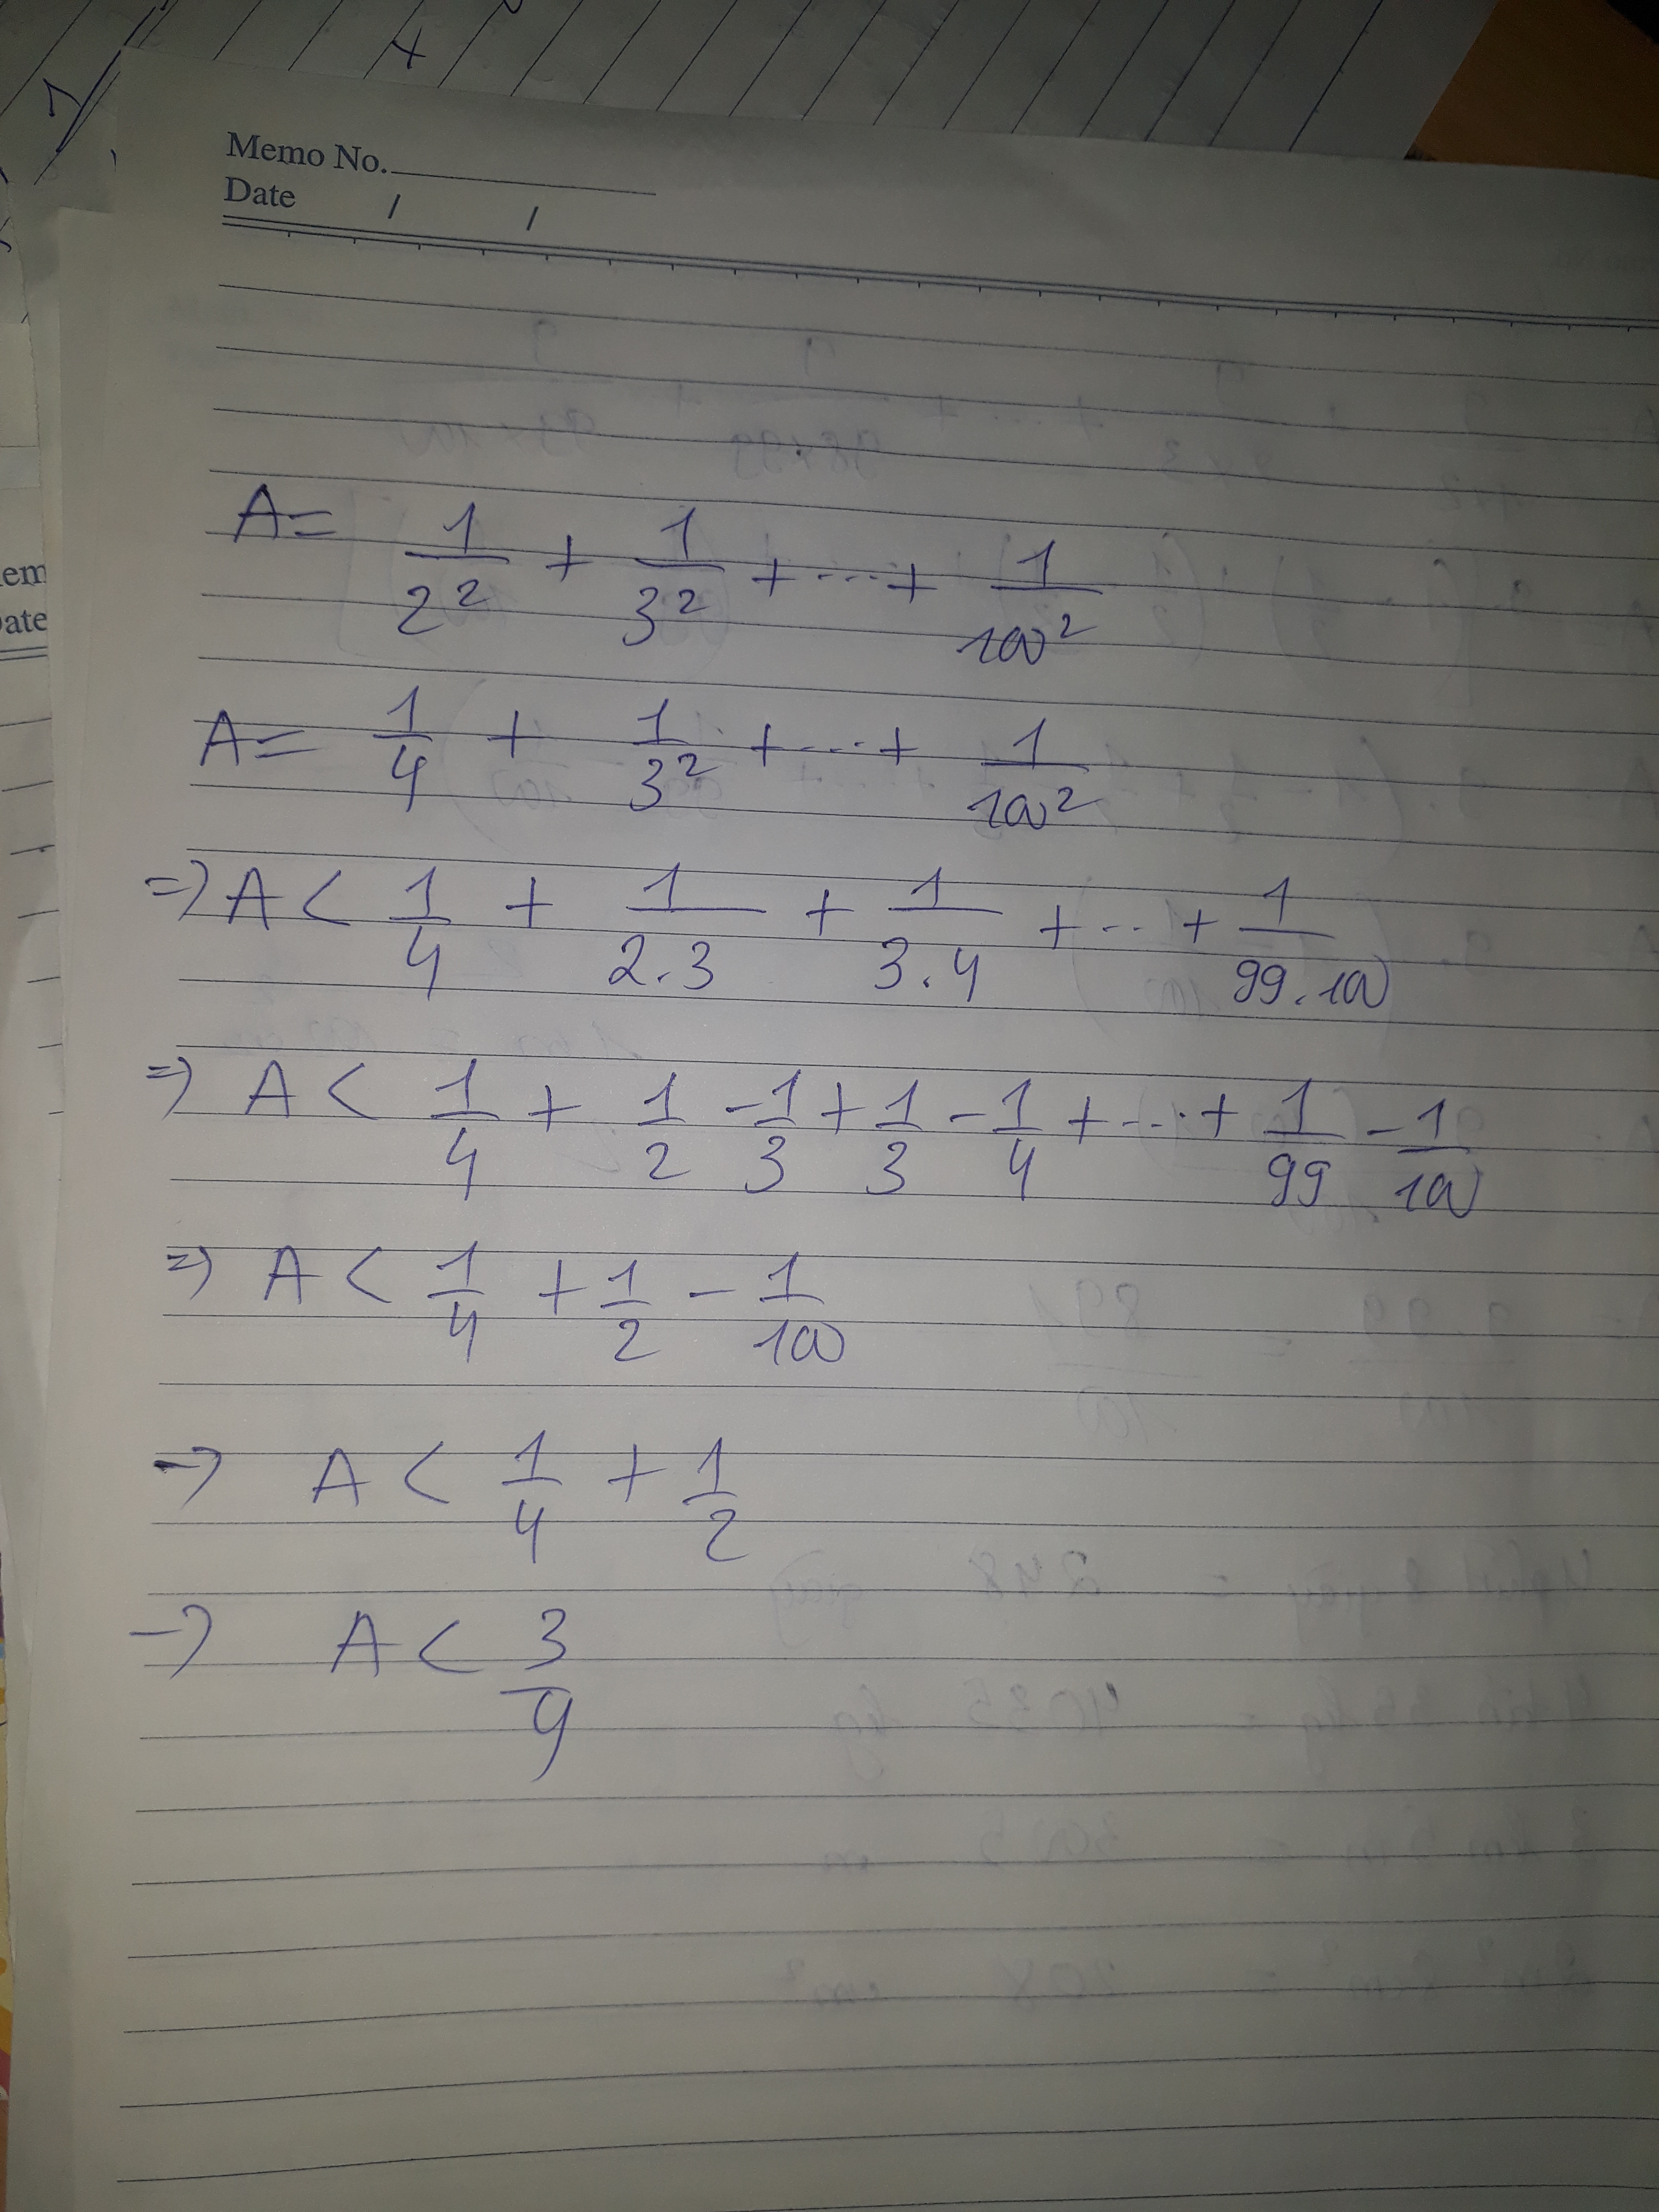 Memo No.
Date / /
A = 1/2² + 1/3² + ... + 1/100²
A = 1/4 + 1/3² + ... + 1/100²
=> A < 1/4 + 1/2.3 + 1/3.4 + ... + 1/99.100
=> A < 1/4 + 1/2 - 1/3 + 1/3 - 1/4 + ... + 1/99 - 1/100
=> A < 1/4 + 1/2 - 1/100
-> A < 1/4 + 1/2
-> A < 3/4